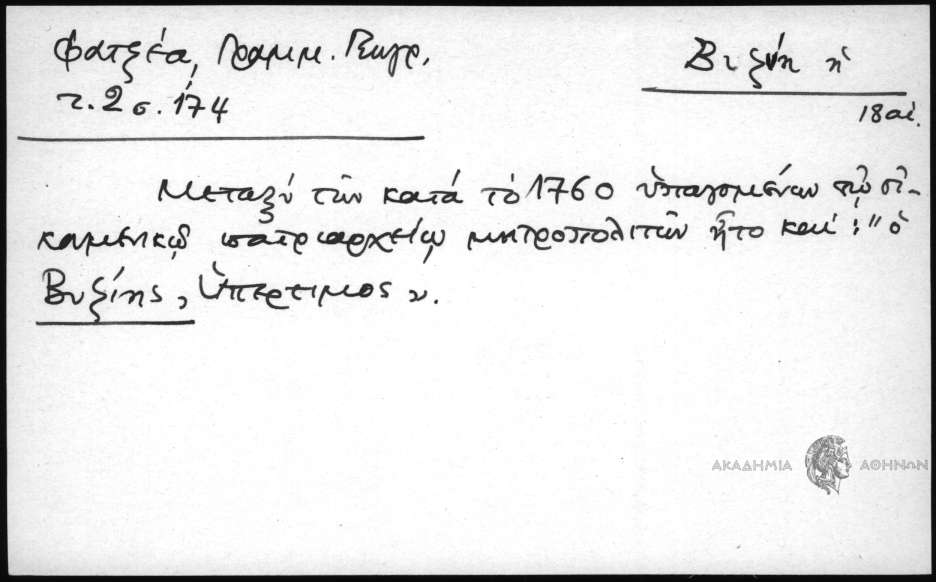 Φατζέα, Γραμμ. Γεωγρ.
τ. 2 σ. 174
Βιζύη ἡ
18 αἰ.
Μεταξύ τῶν κατά τὸ 1760 ὑπαγομένων τῷ οἰ-
κουμενικῷ πατριαρχείῳ μητροπολιτῶν ἦτο καί : "ὁ
Βυζίης, Ὑπέρτιμος".
ΑΚΑΔΗΜΙΑ ΑΘΗΝΩΝ